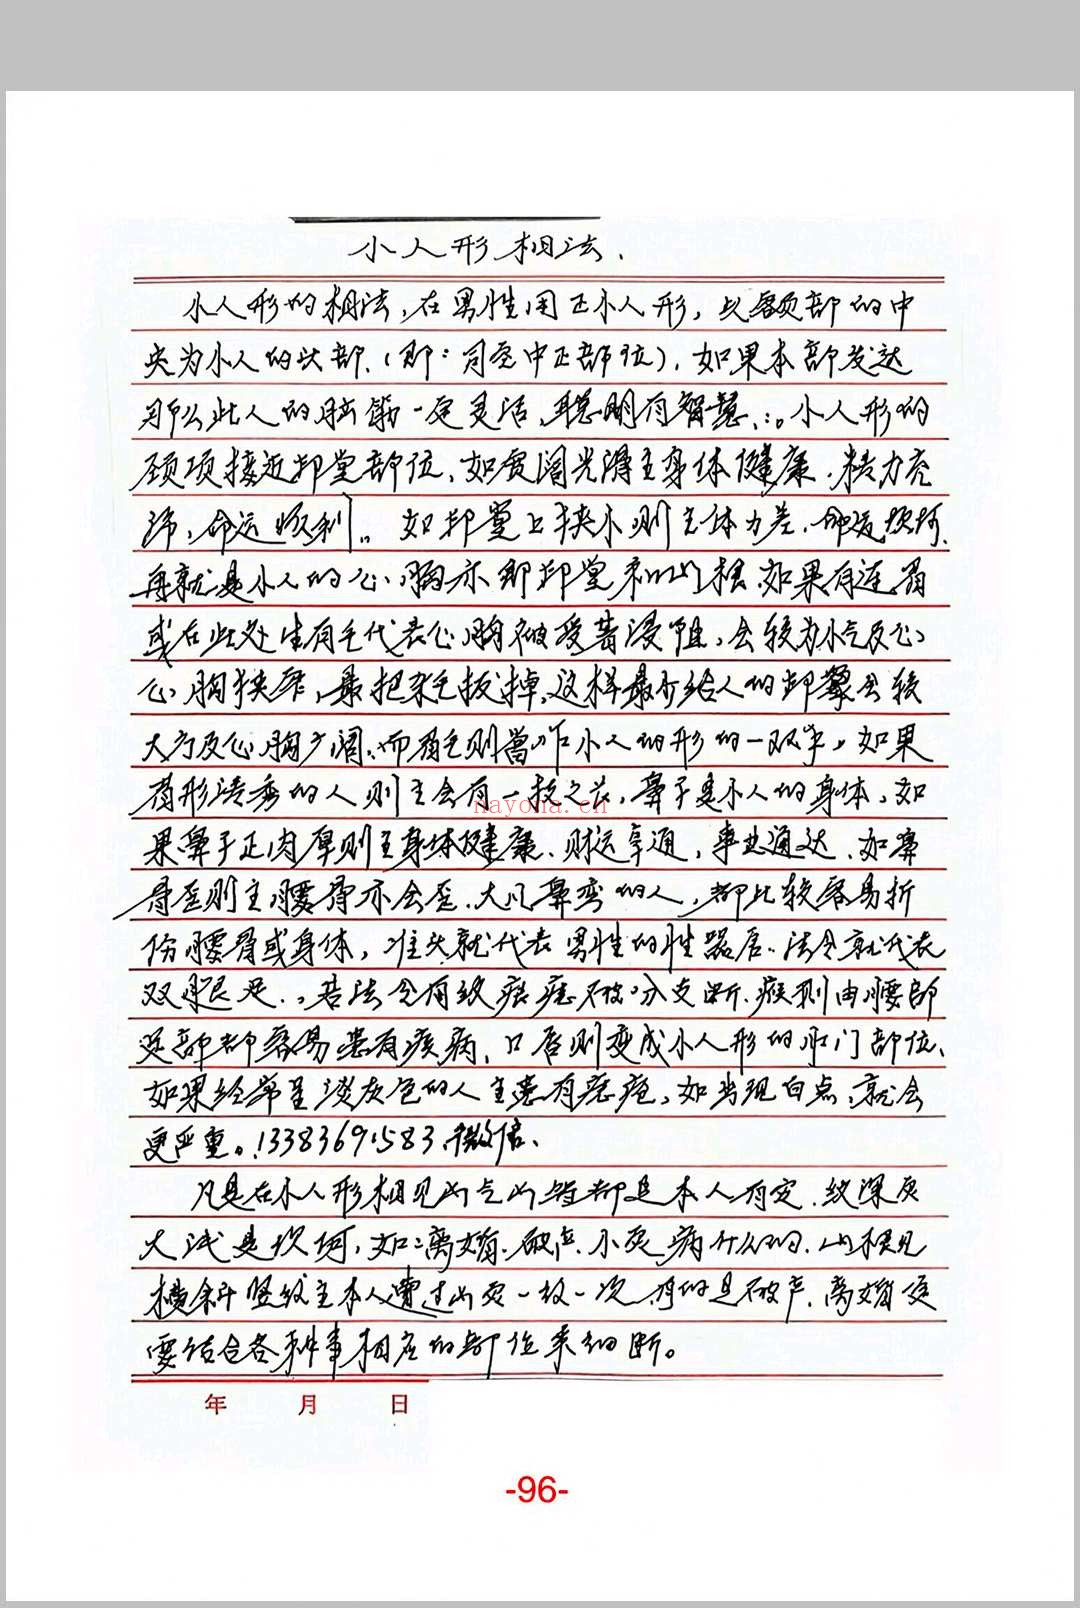 小人形相法.
小人形的相法,在男性用正小人形,以额部的中
央为小人的头部.(即:司空中正部位),如果本部发达
那么此人的脑筋一定灵活,聪明有智慧.:。小人形的
颈项接近印堂部位、如宽阔光泽主身体健康.精力充
沛,命运顺利。如印堂上狭小则主体力差.命运坎坷.
再就是小人的心胸亦即印堂和山根.如果有连眉
或在此处生有毛代表心胸被受著浸阻,会较为小气及心
心胸狭窄,最把杂毛拔掉.这样最少给人的印象会较
大方及心胸广阔.而眉毛则当作小人的形的一双手,如果
眉形清秀的人则主会有一技之长,鼻子是小人的身体,如
nayona.cn
果鼻子正肉厚则主身体健康、财运亨通,事业通达.如鼻
骨歪则主腰骨亦会歪.大凡鼻弯的人,都比较容易折
伤腰骨或身体,准头就代表男性的性器官.法令就代表
双腿足.,若法令有纹痕痣 分支断.疾 则由腰部
足部都容易患有疾病、口唇则变成小人形的肛门部位、
如果经常呈淡灰色的人主患有痣疮,如出现白点,就会
更严重。13383691583.微信.
凡是在小人形相见 都是本人有定.纹深灾
大浅是坎坷,如:离婚.破 .小灾病什么的.山根见
横斜竖纹主本人遭过 灾一纹一次.有的是破产.离婚 
要结合各种事相应的部位来细断。
年 月 日
-96-